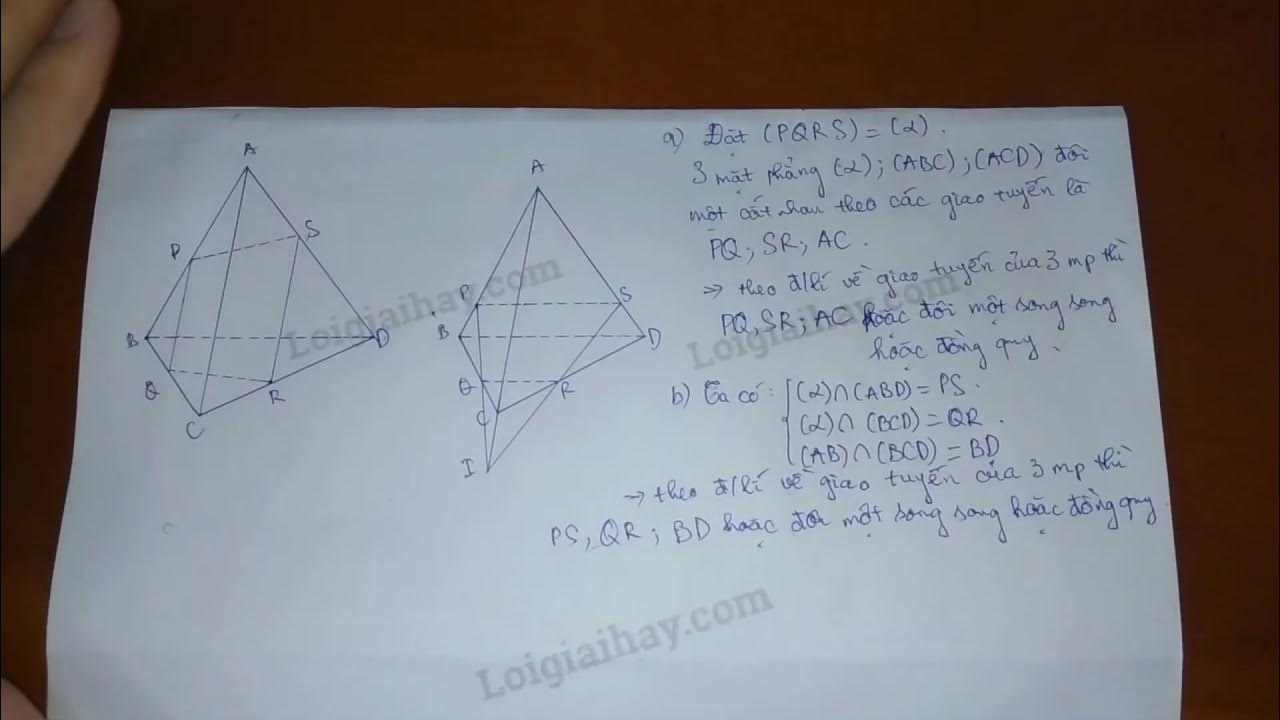 A
P
S
B
D
Q
R
C
A
P
S
B
D
Q
R
C
I
a) Đặt (PQRS) = (α).
3 mặt phẳng (α); (ABC); (ACD) đôi
một cắt nhau theo các giao tuyến là
PQ; SR; AC.
→ theo đ/lí về giao tuyến của 3 mp thì
PQ, SR; AC hoặc đôi một song song
hoặc đồng quy.
b) Ta có: (α)∩(ABD) = PS.
(α)∩(BCD) = QR.
(AB)∩(BCD) = BD
→ theo đ/lí về giao tuyến của 3 mp thì
PS, QR; BD hoặc đôi một song song hoặc đồng quy.
Loigiaihay.com
Loigiaihay.com
Loigiaihay.com